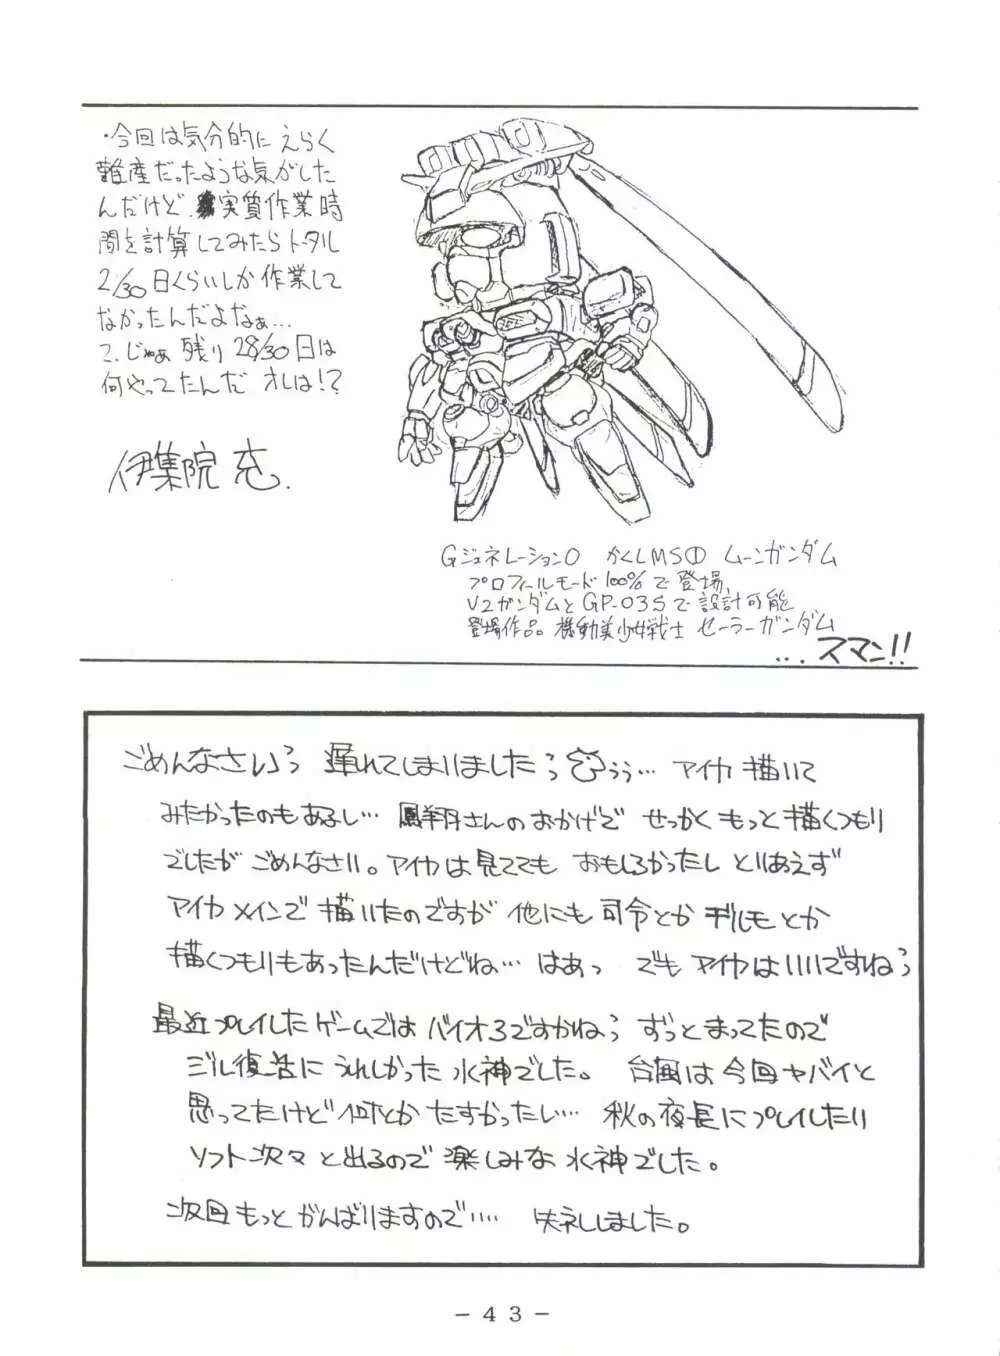 ・今回は気分的に えらく
難産だったような気がした
んだけど、実質作業時
間を計算してみたら トータル
2/30日くらいしか 作業して
なかったんだよなぁ…
て、じゃぁ 残り 28/30日は
何やってたんだ オレは!?
伊集院 充.
Gジェネレーション0 かくしMS① ムーンガンダム
プロフィールモード 100%で登場、
V2ガンダムと GP-03Sで設計可能
登場作品。機動美少女戦士 セーラーガンダム
...スマン!!
ごめんなさいぅ 遅れてしまいましたぅ うぅ… アイカ 描いて
みたかったのもあるし… 鳳翔さんのおかげで せっかく もっと 描くつもり
でしたが ごめんなさい。アイカは見ててもおもしろかったし とりあえず
アイカ メインで 描いたのですが 他にも 司令とか デルモ とか
描くつもりもあったんだけどね… はあっ でも アイカはいいですねぅ
最近プレイしたゲームでは バイオ3ですかねぅ ずっとまってたので
ジル復活に うれしかった 水神でした。 台風は 今回ヤバイと
思ってたけど 何とか たすかったい… 秋の夜長に プレイしたい
ソフト次々 と出るので 楽しみな 水神でした。
次回 もっと がんばりますので…. 失礼しました。
- 4 3 -